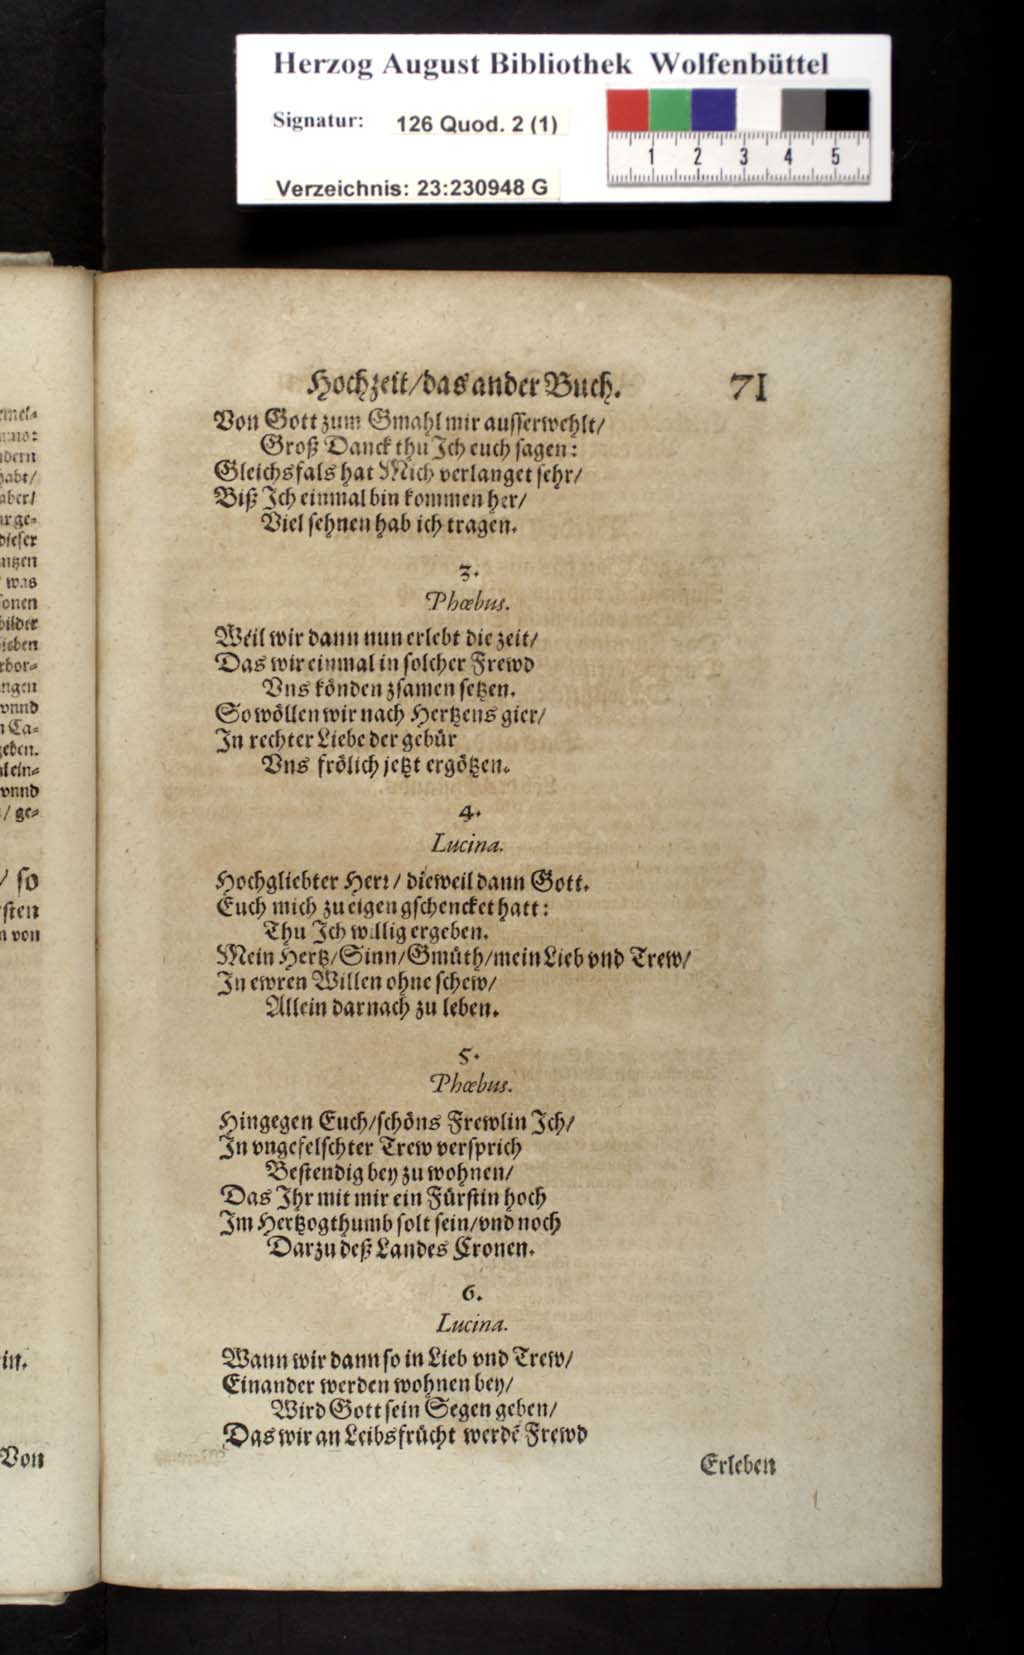 Herzog August Bibliothek Wolfenbüttel
Signatur: 126 Quod. 2 (1)
1 2 3 4 5
Verzeichnis: 23:230948 G
Hochzeit/das ander Buch. 71
Von Gott zum Gmahl mir ausserwehlt/
Groß Danck thu Ich euch sagen:
Gleichsfals hat Mich verlanget sehr/
Biß Ich einmal bin kommen her/
Viel sehnen hab ich tragen.
3.
Phœbus.
Weil wir dann nun erlebt die zeit/
Das wir einmal in solcher Frewd
Vns könden zsamen setzen.
So wöllen wir nach Hertzens gier/
In rechter Liebe der gebür
Vns frölich jetzt ergötzen.
4.
Lucina.
Hochgliebter Herr/ dieweil dann Gott.
Euch mich zu eigen gschencket hatt:
Thu Ich willig ergeben.
Mein Hertz/Sinn/Gmüth/mein Lieb vnd Trew/
In ewren Willen ohne schew/
Allein darnach zu leben.
5.
Phœbus.
Hingegen Euch/schöns Frewlin Ich/
In vngefelschter Trew versprich
Bestendig bey zu wohnen/
Das Ihr mit mir ein Fürstin hoch
Im Hertzogthumb solt sein/vnd noch
Darzu deß Landes Cronen.
6.
Lucina.
Wann wir dann so in Lieb vnd Trew/
Einander werden wohnen bey/
Wird Gott sein Segen geben/
Das wir an Leibsfrücht werdē Frewd
Erleben
habt/
dieser
/ was
sonen
bilder
vnnd
geben.
vnnd
/ ge=
/ so
n von
Von